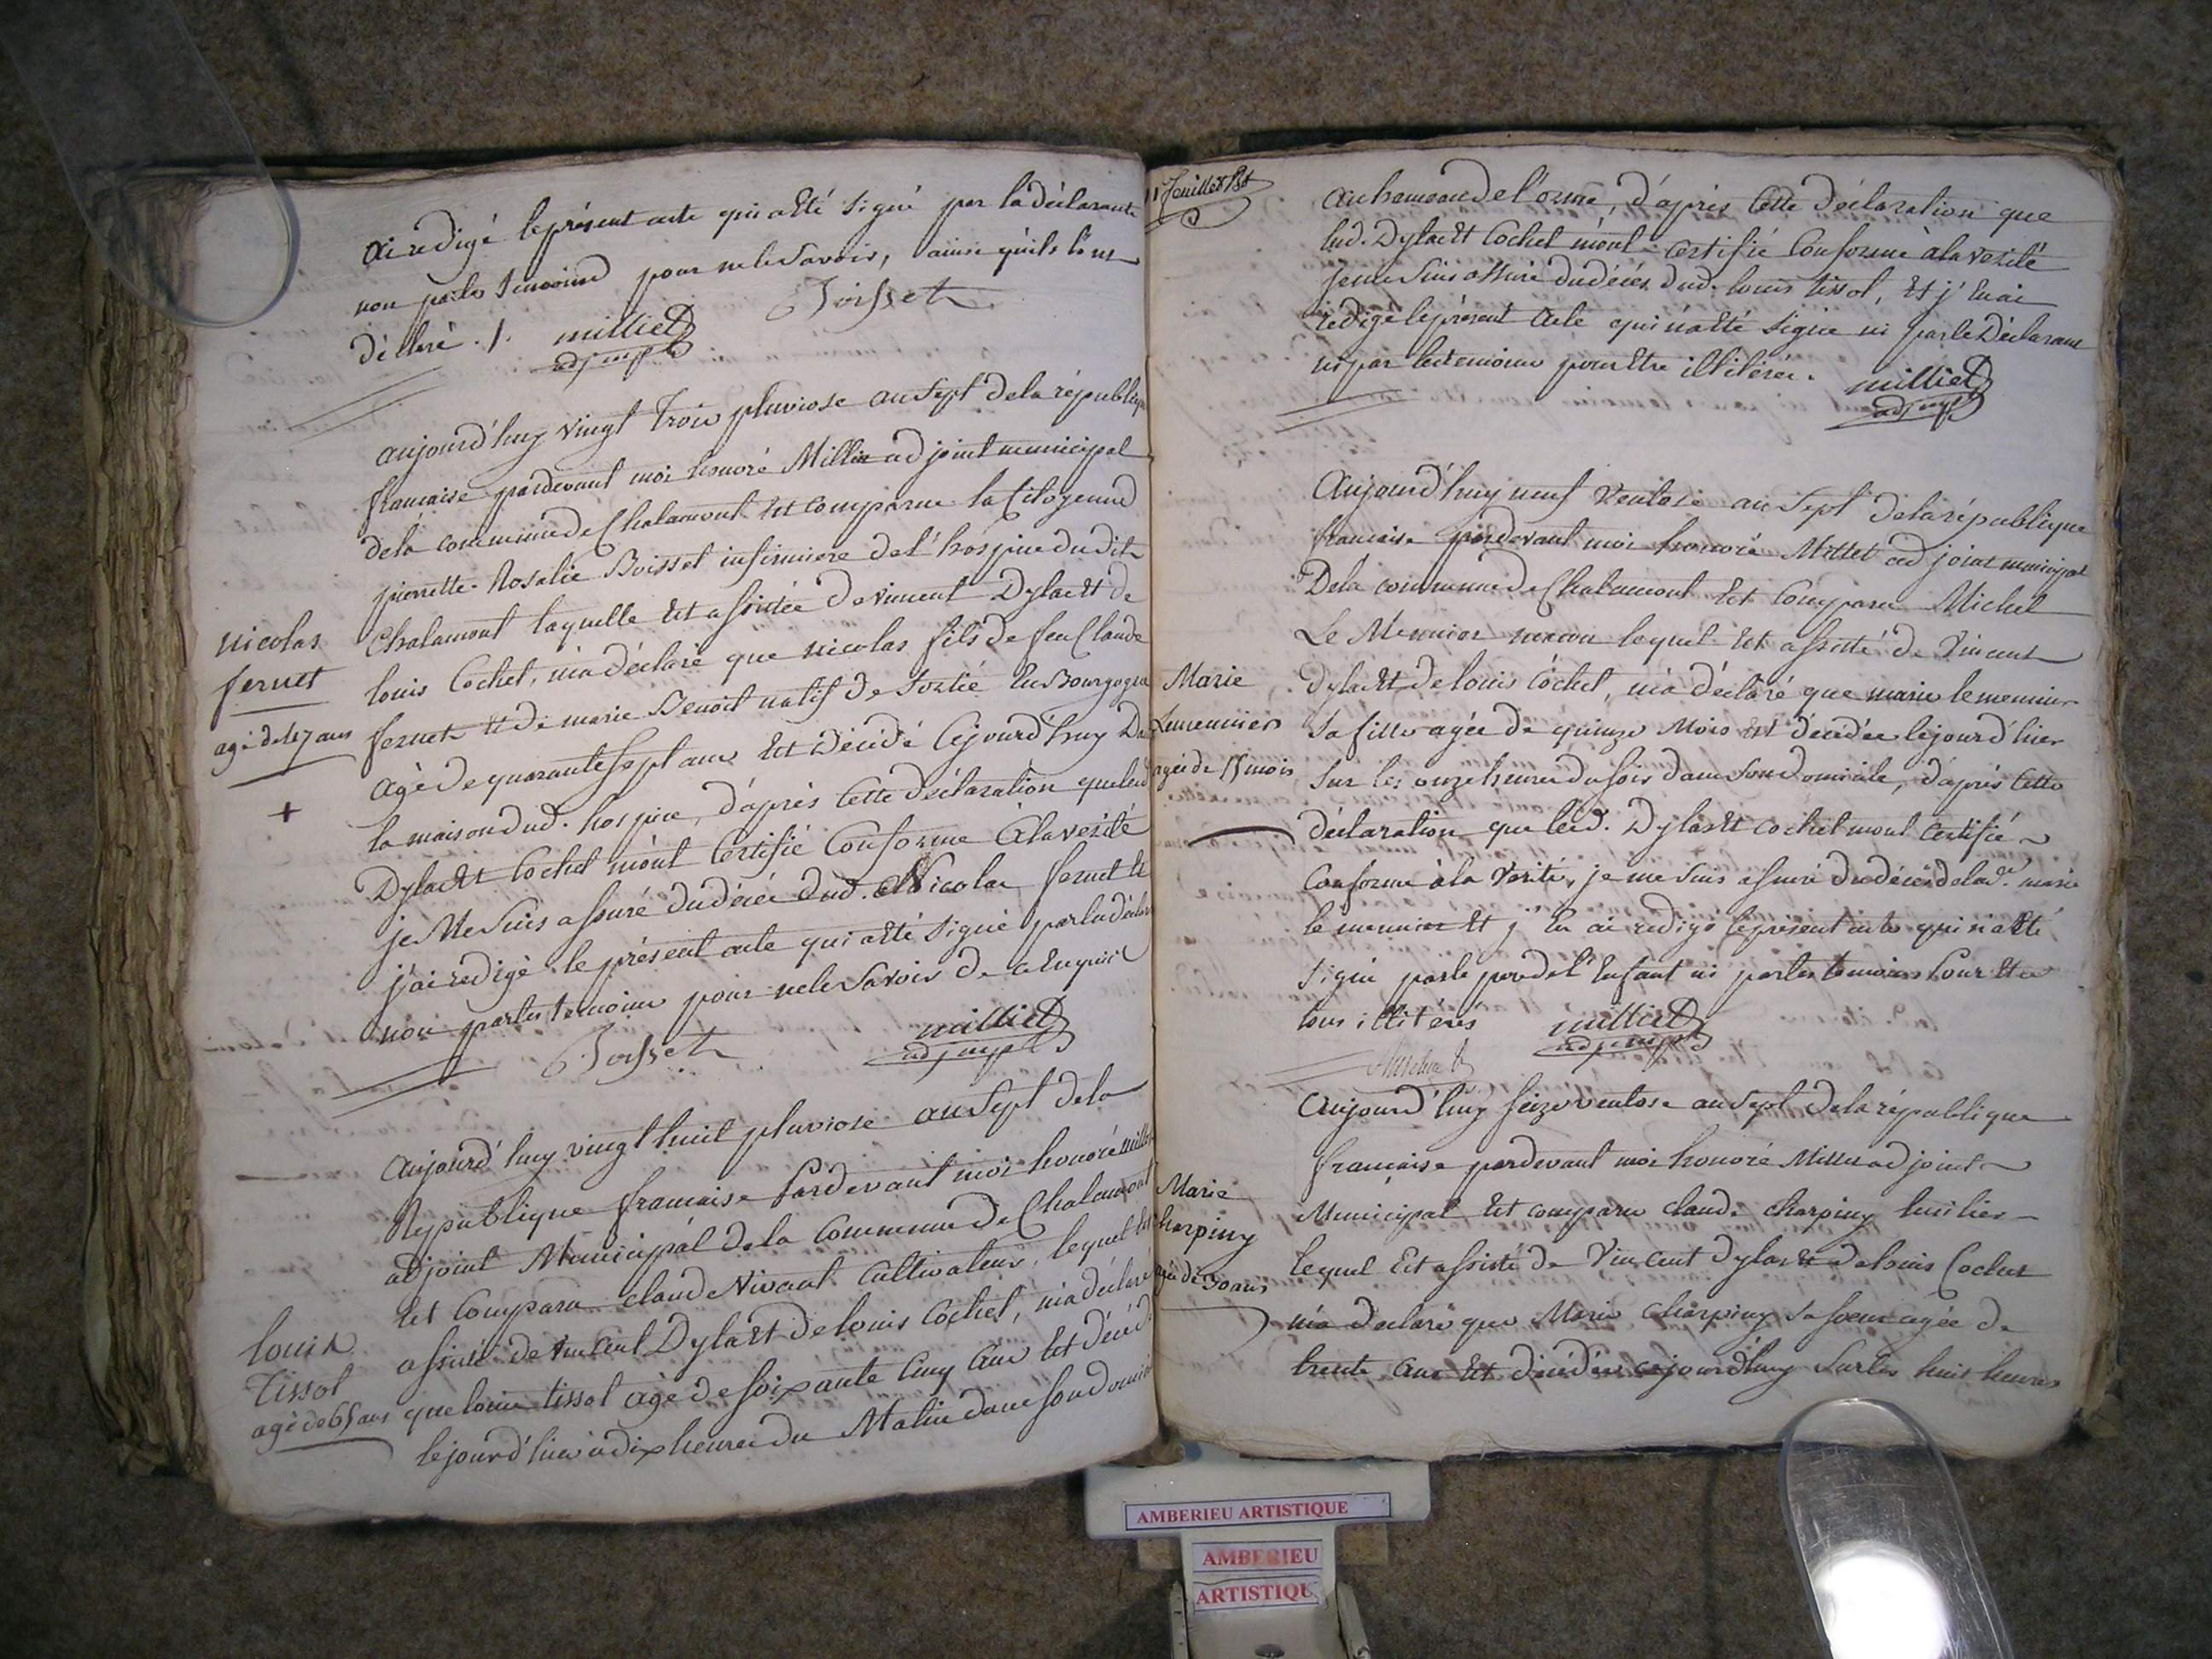 ai redigé le présent acte qui a eté signé par la déclarante
non par les temoins pour ne le savoir, ainsi qu'ils l'ont
déclaré ./. milliet Boisset
adj mpl
aujourd'huy vingt trois pluviose an sept de la république
francaise pardevant moi honoré Milliet adjoint municipal
de la commune de Chalamont est comparue la Citoyenne
pierrette Rosalie Boisset infirmiere de l'hospice dudit
Chalamont laquelle est assistée de vincent Dyla et de
louis Cochet, m'a déclaré que nicolas fils de feu Claude
fernet et de marie Benoit natif de en Bourgogne
agé de quarante sept ans est décédé cejourd'huy Da
la maison dud. hospice, d'après cette déclaration que lesd
Dyla et Cochet m'ont certifié conforme à la verité
je me suis assuré du décés dud. Nicolas fernet et
j'ai redigé le présent acte qui a eté signé par la déclar
non par les temoins pour ne le savoir de ce enquis
Boisset milliet
adj mpl
nicolas
fernet
agé de 47 ans
+
aujourd'huy vingt huit pluviose an sept de la
Republique francaise Pardevant moi honoré milliet
adjoint Municipal de la Commune de Chalamont
est comparu claude Nivant Cultivateur, lequel est
assisté de vincent Dyla et de louis Cochet, m'a déclaré
que louis tissot agé de soixante cinq ans est décéd
le jour d'hier à dix heures du Matin dans son domici
louis
Tissot
agé de 65 ans
11 feuillet
au hameau de l'orme, d'après cette déclaration que
lesd. Dyla et Cochet m'ont certifié conforme à la verité
je me suis assuré du décés dud. louis tissot, et j'en ai
redigé le présent acte qui n'a eté signé ni par le Déclarant
ni par les temoins pour être illitérés. milliet
adj mpl
Aujourd'huy neuf ventose an sept de la république
francaise pardevant moi honoré Milliet adjoint municipal
De la commune de Chalamont est comparu Michel
Le Mennier macon lequel est assisté de Vincent
Dyla et de louis Cochet, m'a déclaré que marie lemennier
sa fille agée de quinze Mois est décédée le jour d'hier
sur les onze heures du soir dans son domicile, d'après cette
déclaration que lesd. Dyla et cochet m'ont certifié
conforme à la verité, je me suis assuré du décés de lad.e marie
le mennier et j'en ai redigé le présent acte qui n'a eté
signé par le pere de l'enfant ni par les temoins Pour etre
tous illitérés milliet
adj mpl
Marie
Lemennier
agée de 15 mois
aujourd'huy seize ventose an sept de la république
francaise pardevant moi honoré Milliet adjoint
Municipal est comparu claude charpiny
lequel est assisté de Vincent Dyla et de louis Cochet
m'a declaré que Marie Charpiny sa soeur agée de
trente ans est décédée cejourd'huy sur les huit heures
Marie
charpiny
agée de 30 ans
AMBERIEU ARTISTIQUE
AMBERIEU
ARTISTIQU